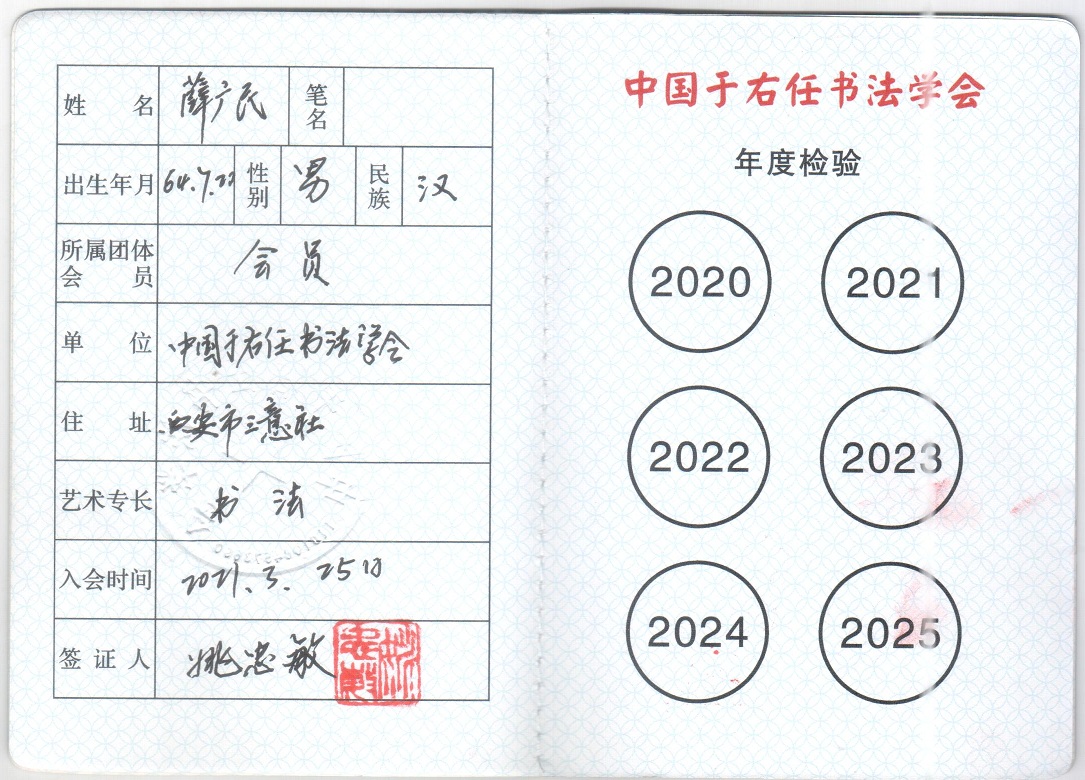 姓名 薛广民 笔名
出生年月 64.7.22 性别 男 民族 汉
所属团体会员 会员
单位 中国于右任书法学会
住址 西安市三意社
艺术专长 书法
入会时间 2021.3.25日
签证人 姚忠敏
中国于右任书法学会
年度检验
2020 2021
2022 2023
2024 2025